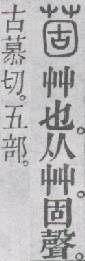 𦯄艸也。从艸。固聲。
古慕切。五部。